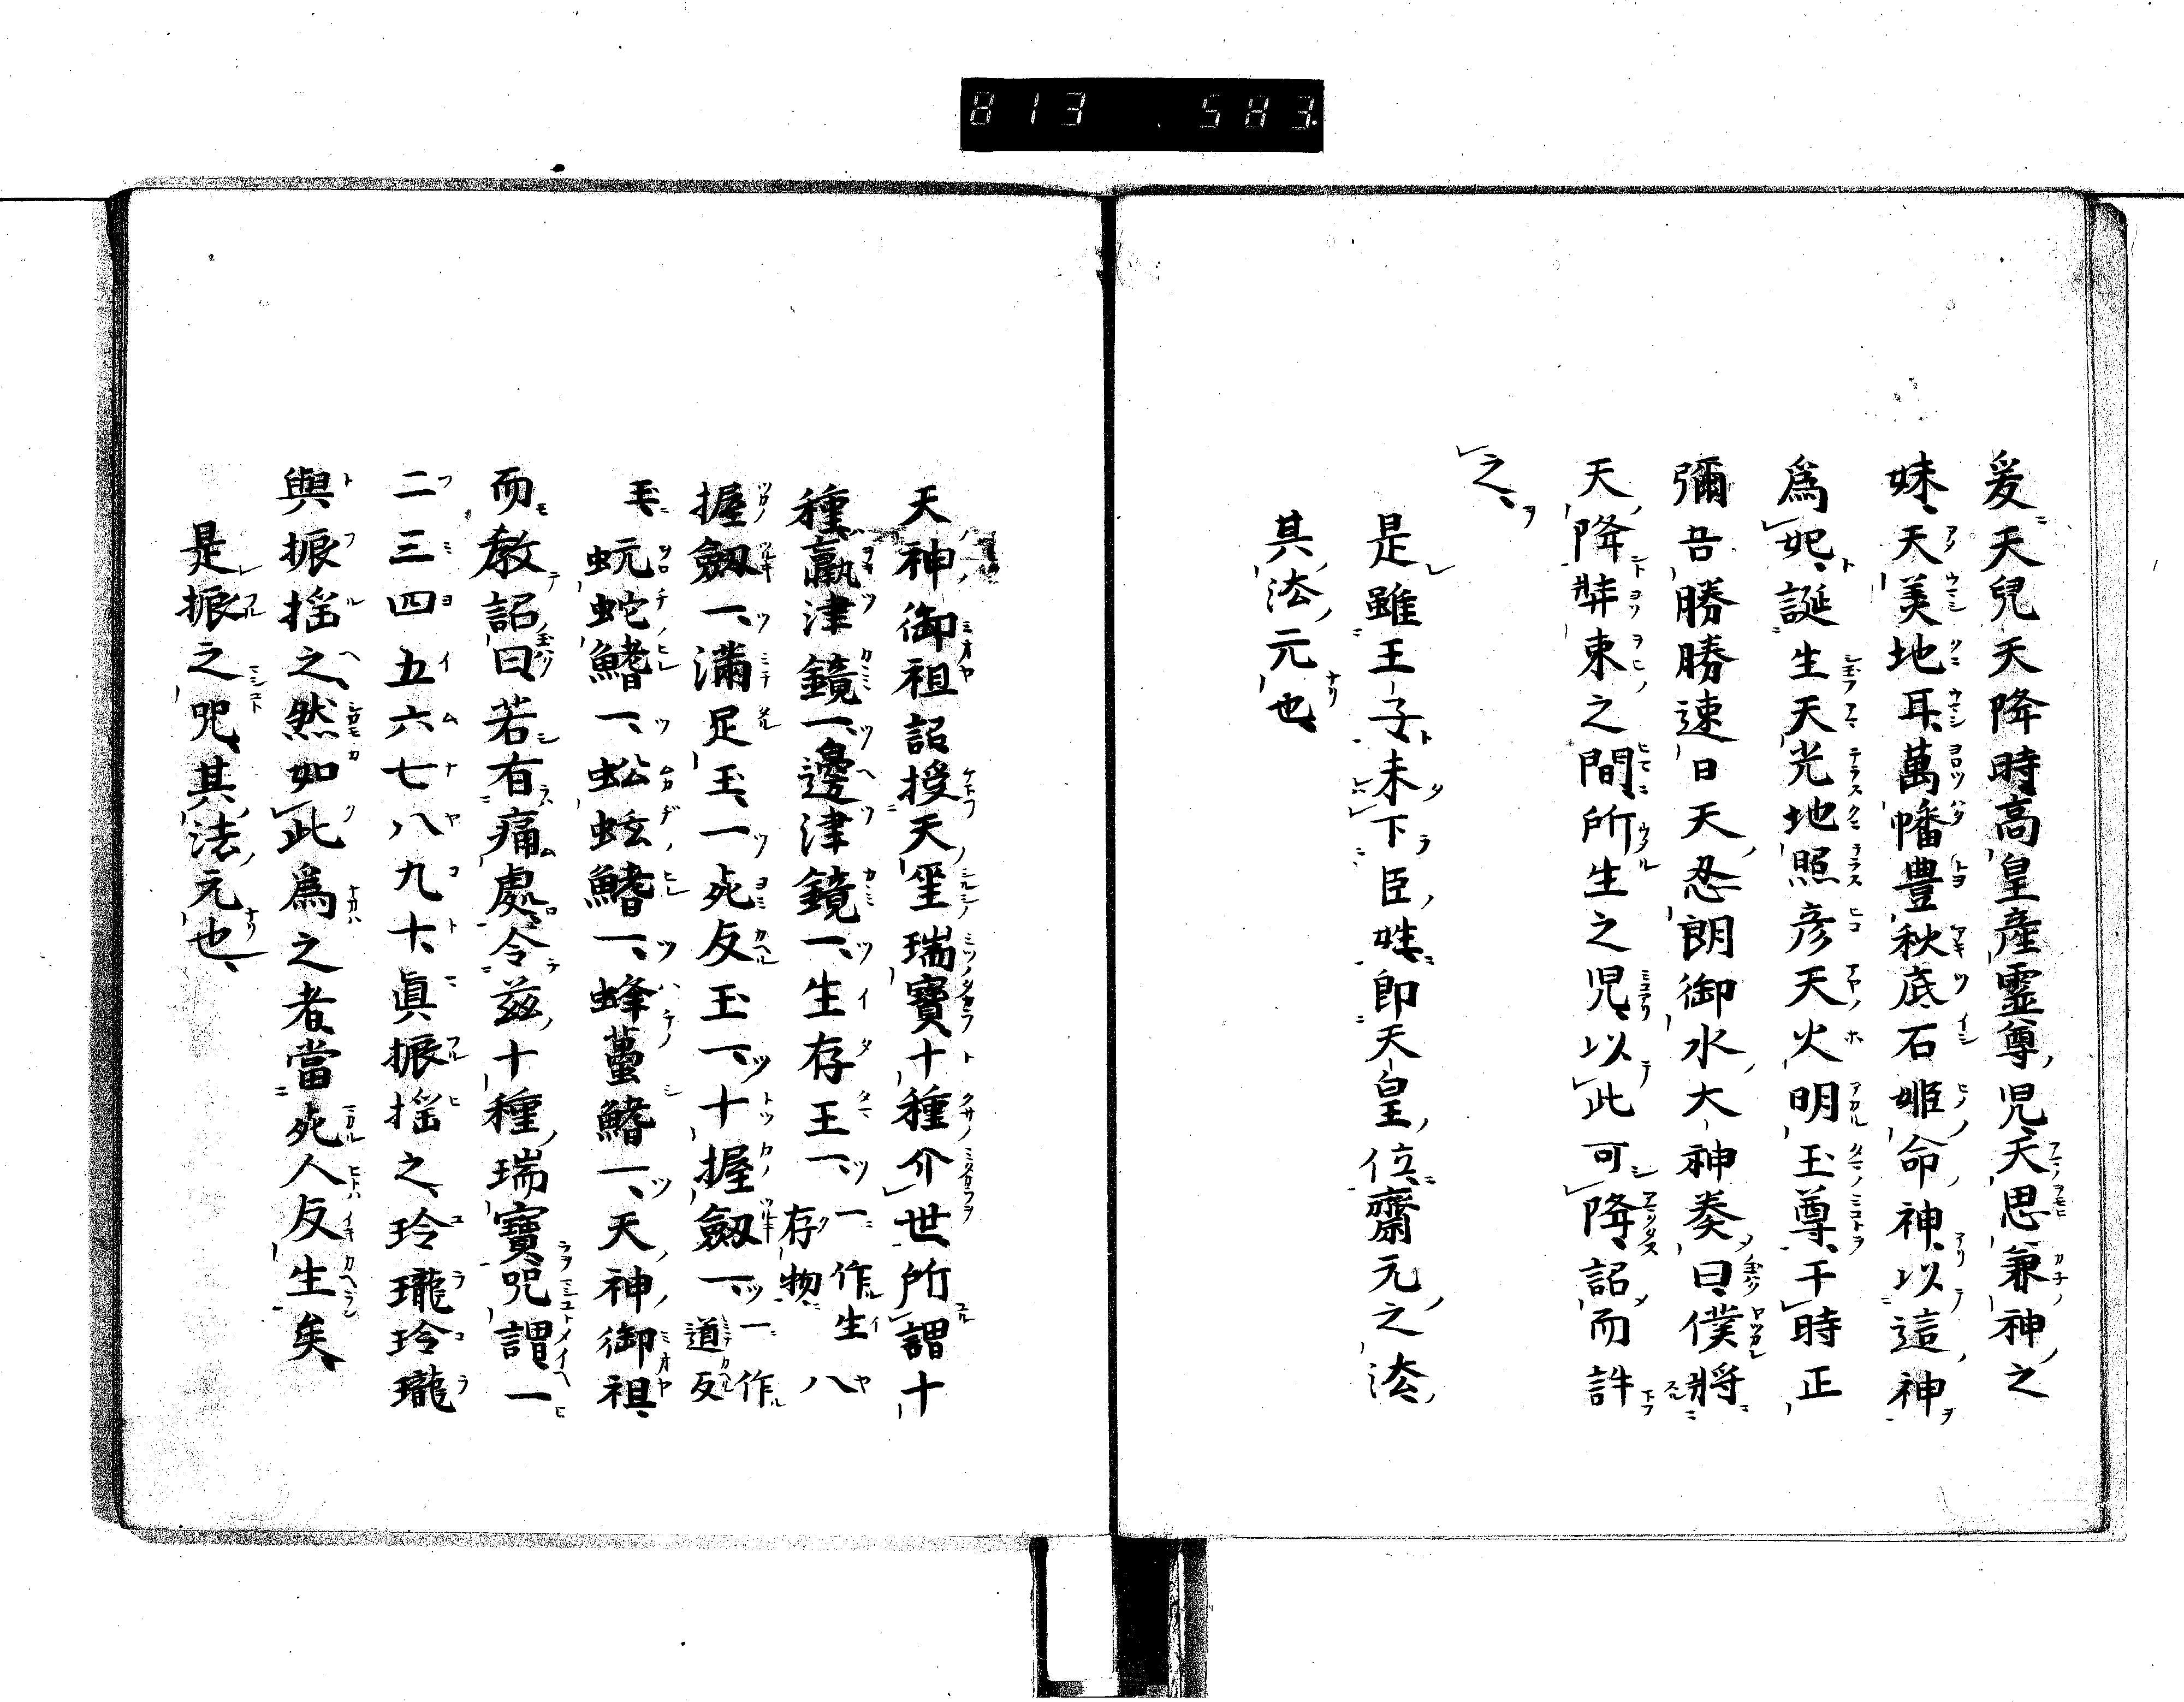 813 583
爰天兒天降時高皇産霊尊児天思兼神之
妹天美地耳萬幡豊秋底石姫命神以這神
為妃誕生天光地照彦天火明玉尊于時正
彌吾勝勝速日天忍朗御水大神奏曰僕將
天降弉束之間所生之児以此可降詔而許
之
是雖王子未下臣姓即天皇位齋元之法
其法元也
天神御祖詔授天璽瑞寶十種介世所謂十
種羸津鏡一邊津鏡一生存玉一一作生存物八
握劔一滿足玉一死反玉一十握劔一一作道反
玉蚖蛇鰭一蚣蚿鰭一蜂䘍鰭一天神御祖
而教詔曰若有痛處令茲十種瑞寶咒謂一
二三四五六七八九十眞振搖之玲瓏玲瓏
與振搖之然如此為之者當死人反生矣
是振之咒其法元也